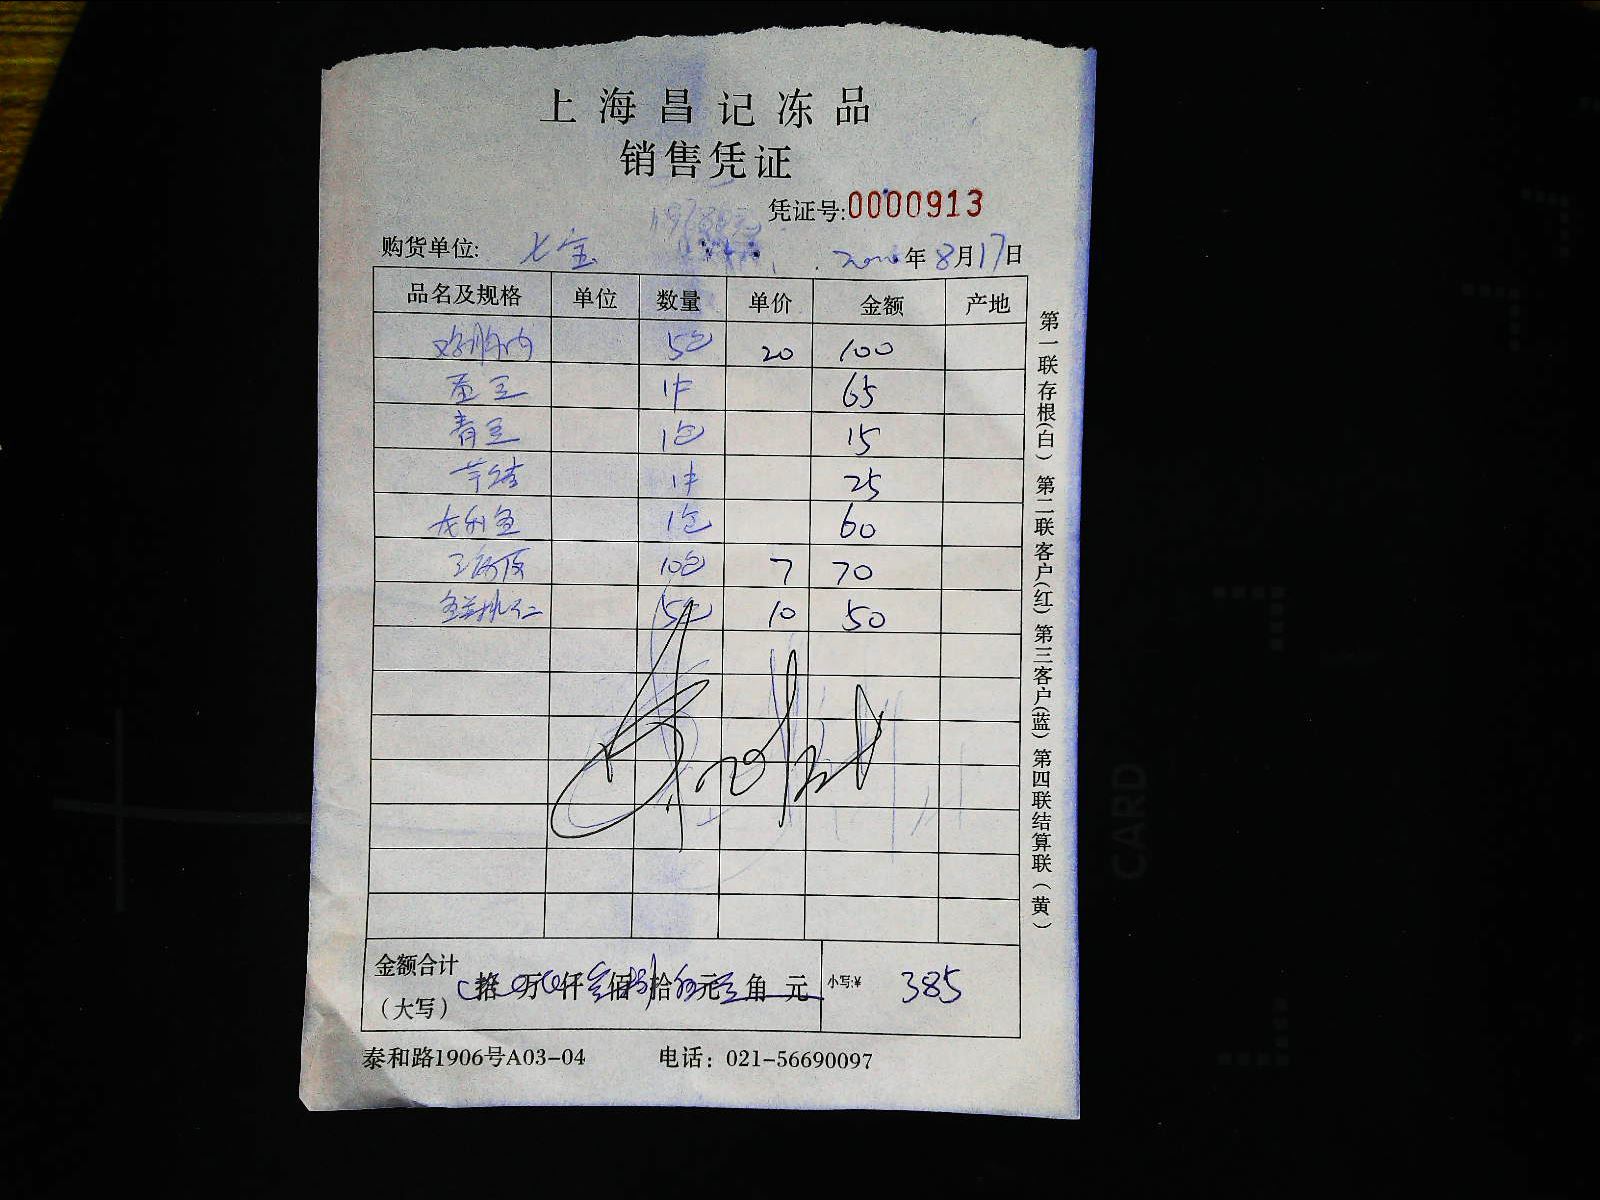 上海昌记冻品
销售凭证
凭证号:0000913
购货单位: 七宝 年8月17日
品名及规格 单位 数量 单价 金额 产地
鸡胸肉 5包 20 100
1件 65
青豆 1包 15
1件 25
龙利鱼 1包 60
10包 7 70
5包 10 50
金额合计
(大写) 拾 万 仟 叁佰 捌拾 伍元 角 元 小写:¥ 385
泰和路1906号A03-04 电话: 021-56690097
第一联存根(白) 第二联客户(红) 第三客户(蓝) 第四联结算联(黄)
CARD